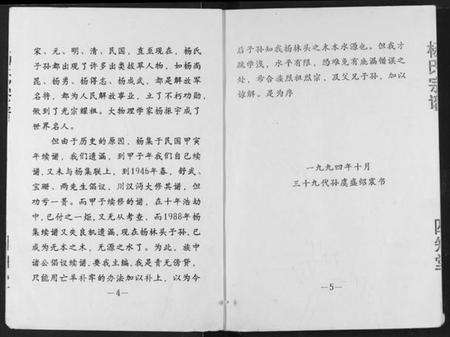 宋、元、明、清、民国,直至现在,杨氏
子孙都出现了许多出类拔萃人物,如杨尚
昆、杨勇、杨得志、杨成武,都是解放军
名将,都为人民解放事业,立了不朽功勋,
做到了光宗耀祖。大物理学家杨振宁成了
世界名人。
但由于历史的原因,杨集于民国甲寅
年续谱,我们遗漏,到甲子年我们自已续
谱,又未与杨集联上,到1946年春,舒武、
宝珊、两先生倡议,川汉沔大修其谱,但
功亏一篑。而甲子续修的谱,在十年浩劫
中,已付之一炬,又无从考查,而1988年杨
集续谱又失良机遗漏,现在杨林头子孙,已
成为无本之木,无源之水了。为此,族中
诸公倡议续谱,要我主编,我是责无傍贷,
只能用亡羊补牢的办法加以补上,以为今
—4—
后子孙知我杨林头之木本水源也。但我才
疏学浅,水平有限,恐难免有遗漏错误之
处,希合族照祖然宗,及父兄子孙,加以
谅解。是为序
一九九四年十月
三十九代孙虞盛绍家书
—5—
杨氏宗谱
四知堂